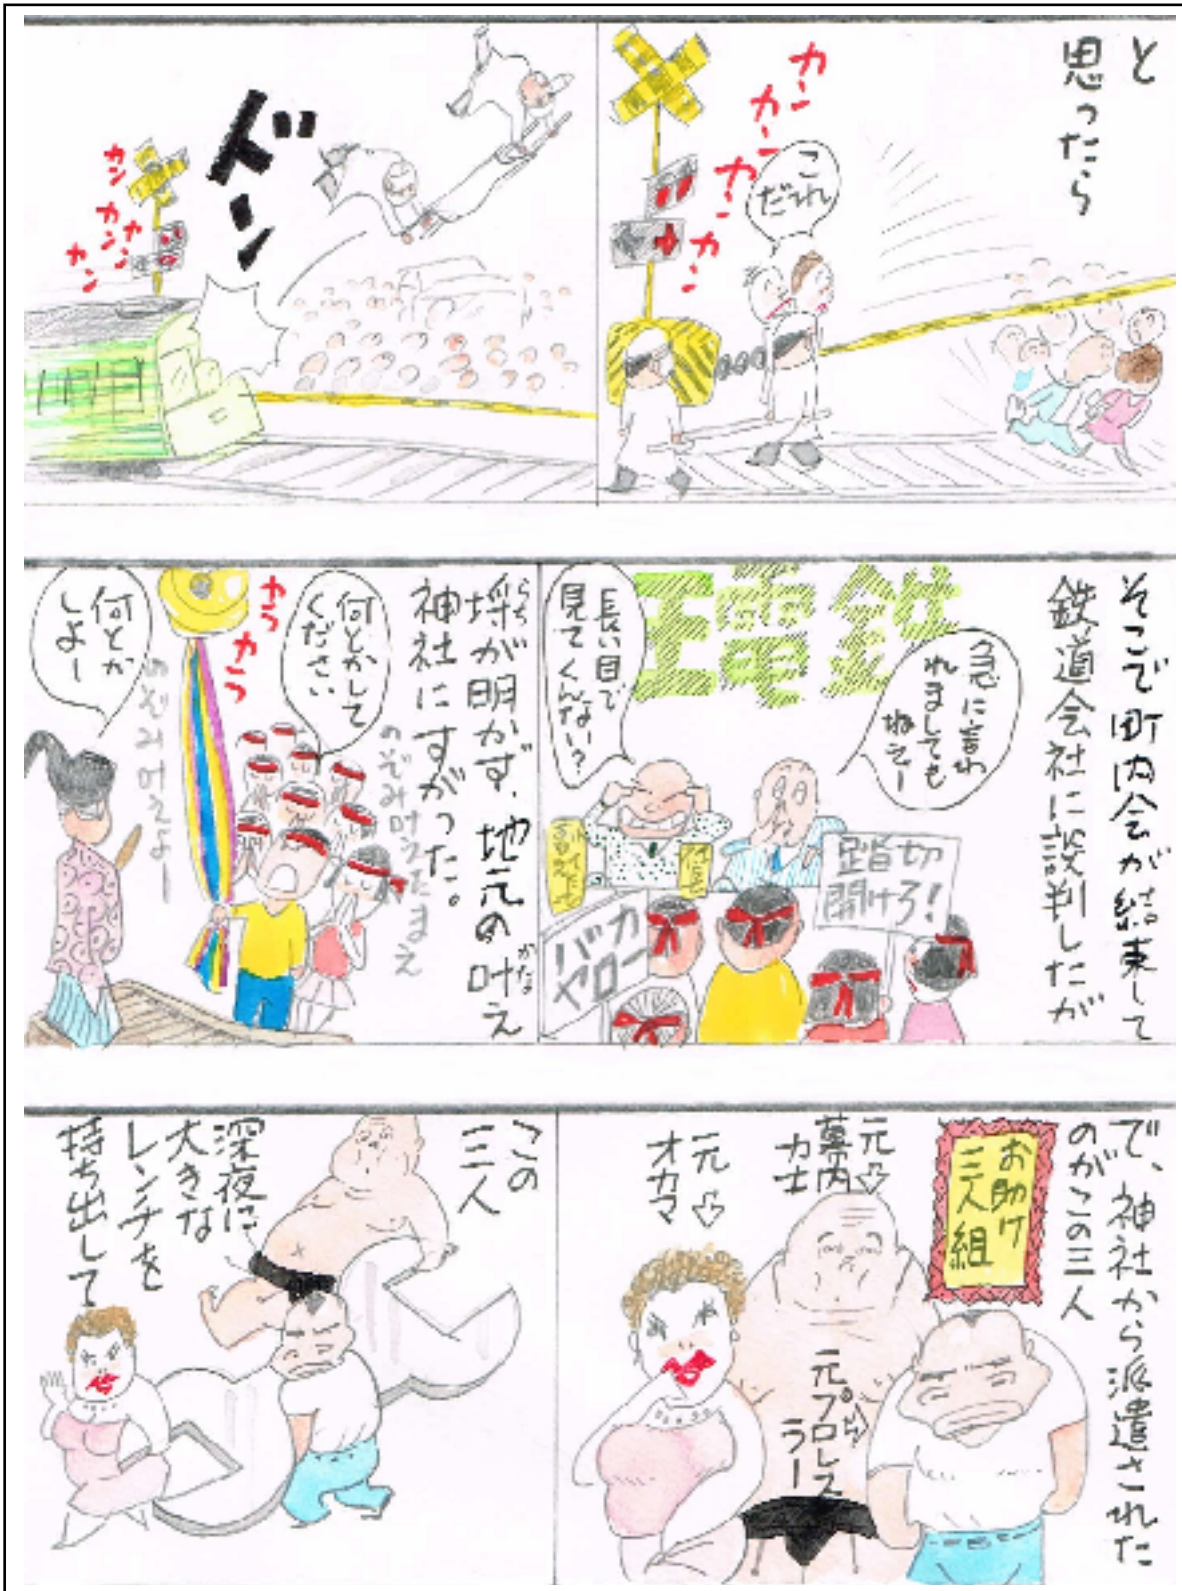 と
思ったら
カン
カーン
カーン
カン
これ
だれ
ドン
カン
カン
カーン
カン
そこで町内会が結束して
鉄道会社に談判したが
王電鉄
急に言わ
れましても
ねえー
長い目で
見てくんない?
踏切
開けろ!
バカ
ヤロー
埒が明かず、地元の叶え
らち
かな
神社にすがった。
何とかして
ください
のぞみ叶えたまえ
カラ
カラ
何とか
しよー
のぞみ叶えよー
で、神社から派遣された
のがこの三人
お助け
三人組
元
幕内
力士
元
オカマ
元プロレス
ラー
この
三人
深夜に
大きな
レンチを
持ち出して